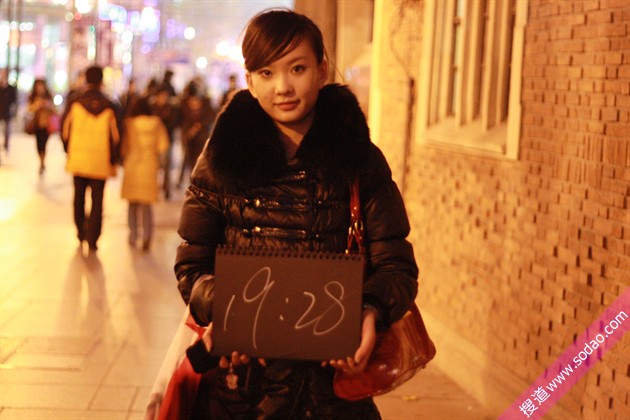 19:28
搜道www.sodao.com